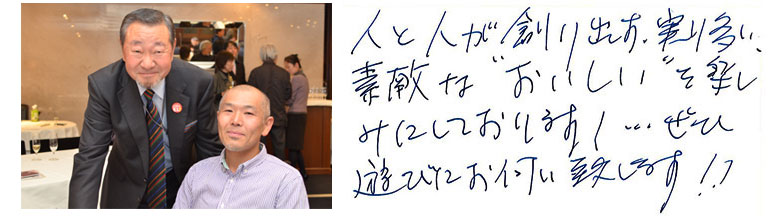 人と人が創り出す、実り多い、
素敵な"おいしい"を楽し
みにしております！…ぜひ
遊びにお伺い致します！！